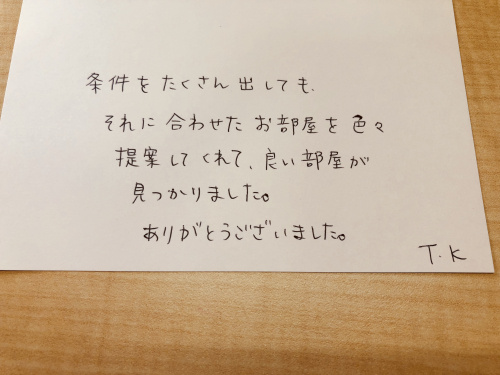 条件をたくさん出しても、
それに合わせたお部屋を色々
提案してくれて、良い部屋が
見つかりました。
ありがとうございました。
T.K